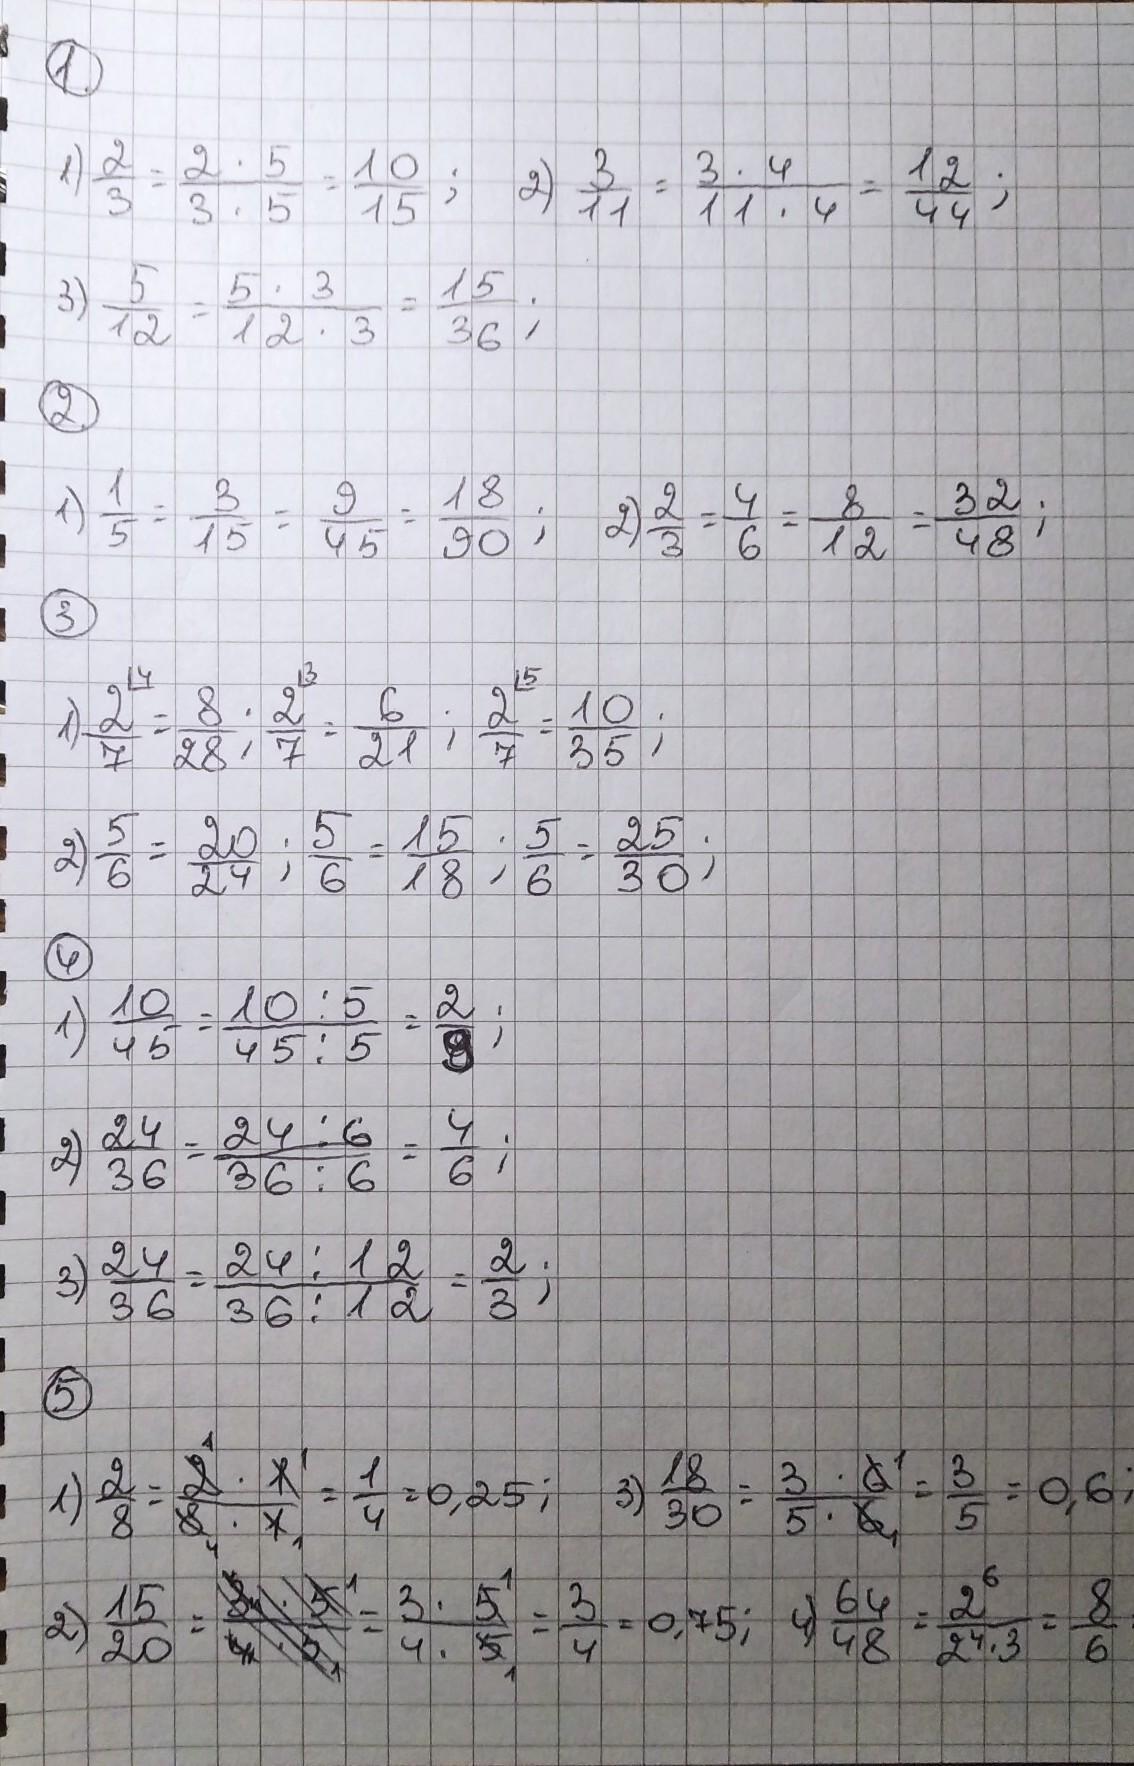 1.
1) 2/3 = 2 · 5/3 · 5 = 10/15 ; 2) 3/11 = 3 · 4/11 · 4 = 12/44 ;
3) 5/12 = 5 · 3/12 · 3 = 15/36 ;
2
1) 1/5 = 3/15 = 9/45 = 18/90 ; 2) 2/3 = 4/6 = 8/12 = 32/48 ;
3
1) 2⌊4/7 = 8/28 ; 2⌊3/7 = 6/21 ; 2⌊5/7 = 10/35 ;
2) 5/6 = 20/24 ; 5/6 = 15/18 ; 5/6 = 25/30 ;
4
1) 10/45 = 10 : 5/45 : 5 = 2/9 ;
2) 24/36 = 24 : 6/36 : 6 = 4/6 ;
3) 24/36 = 24 : 12/36 : 12 = 2/3 ;
5
1) 2/8 = 2¹ · 1¹/8₄ · 1₁ = 1/4 = 0,25 ; 3) 18/30 = 3 · 6¹/5 · 6₁ = 3/5 = 0,6 ;
2) 15/20 = = 3 · 5¹/4 · 5₁ = 3/4 = 0,75 ; 4) 64/48 = 2⁶/2⁴·3 = 8/6